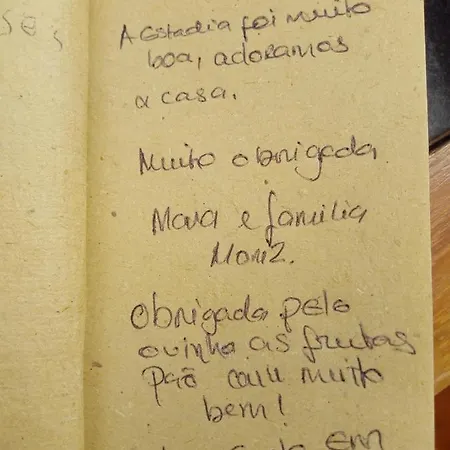 SE,
A Estadia foi muito
boa, adoramos
a casa.
Muito obrigada
e familia
Moniz.
Obrigada pelo
as frutas
Pão caiu muito
bem!
EM